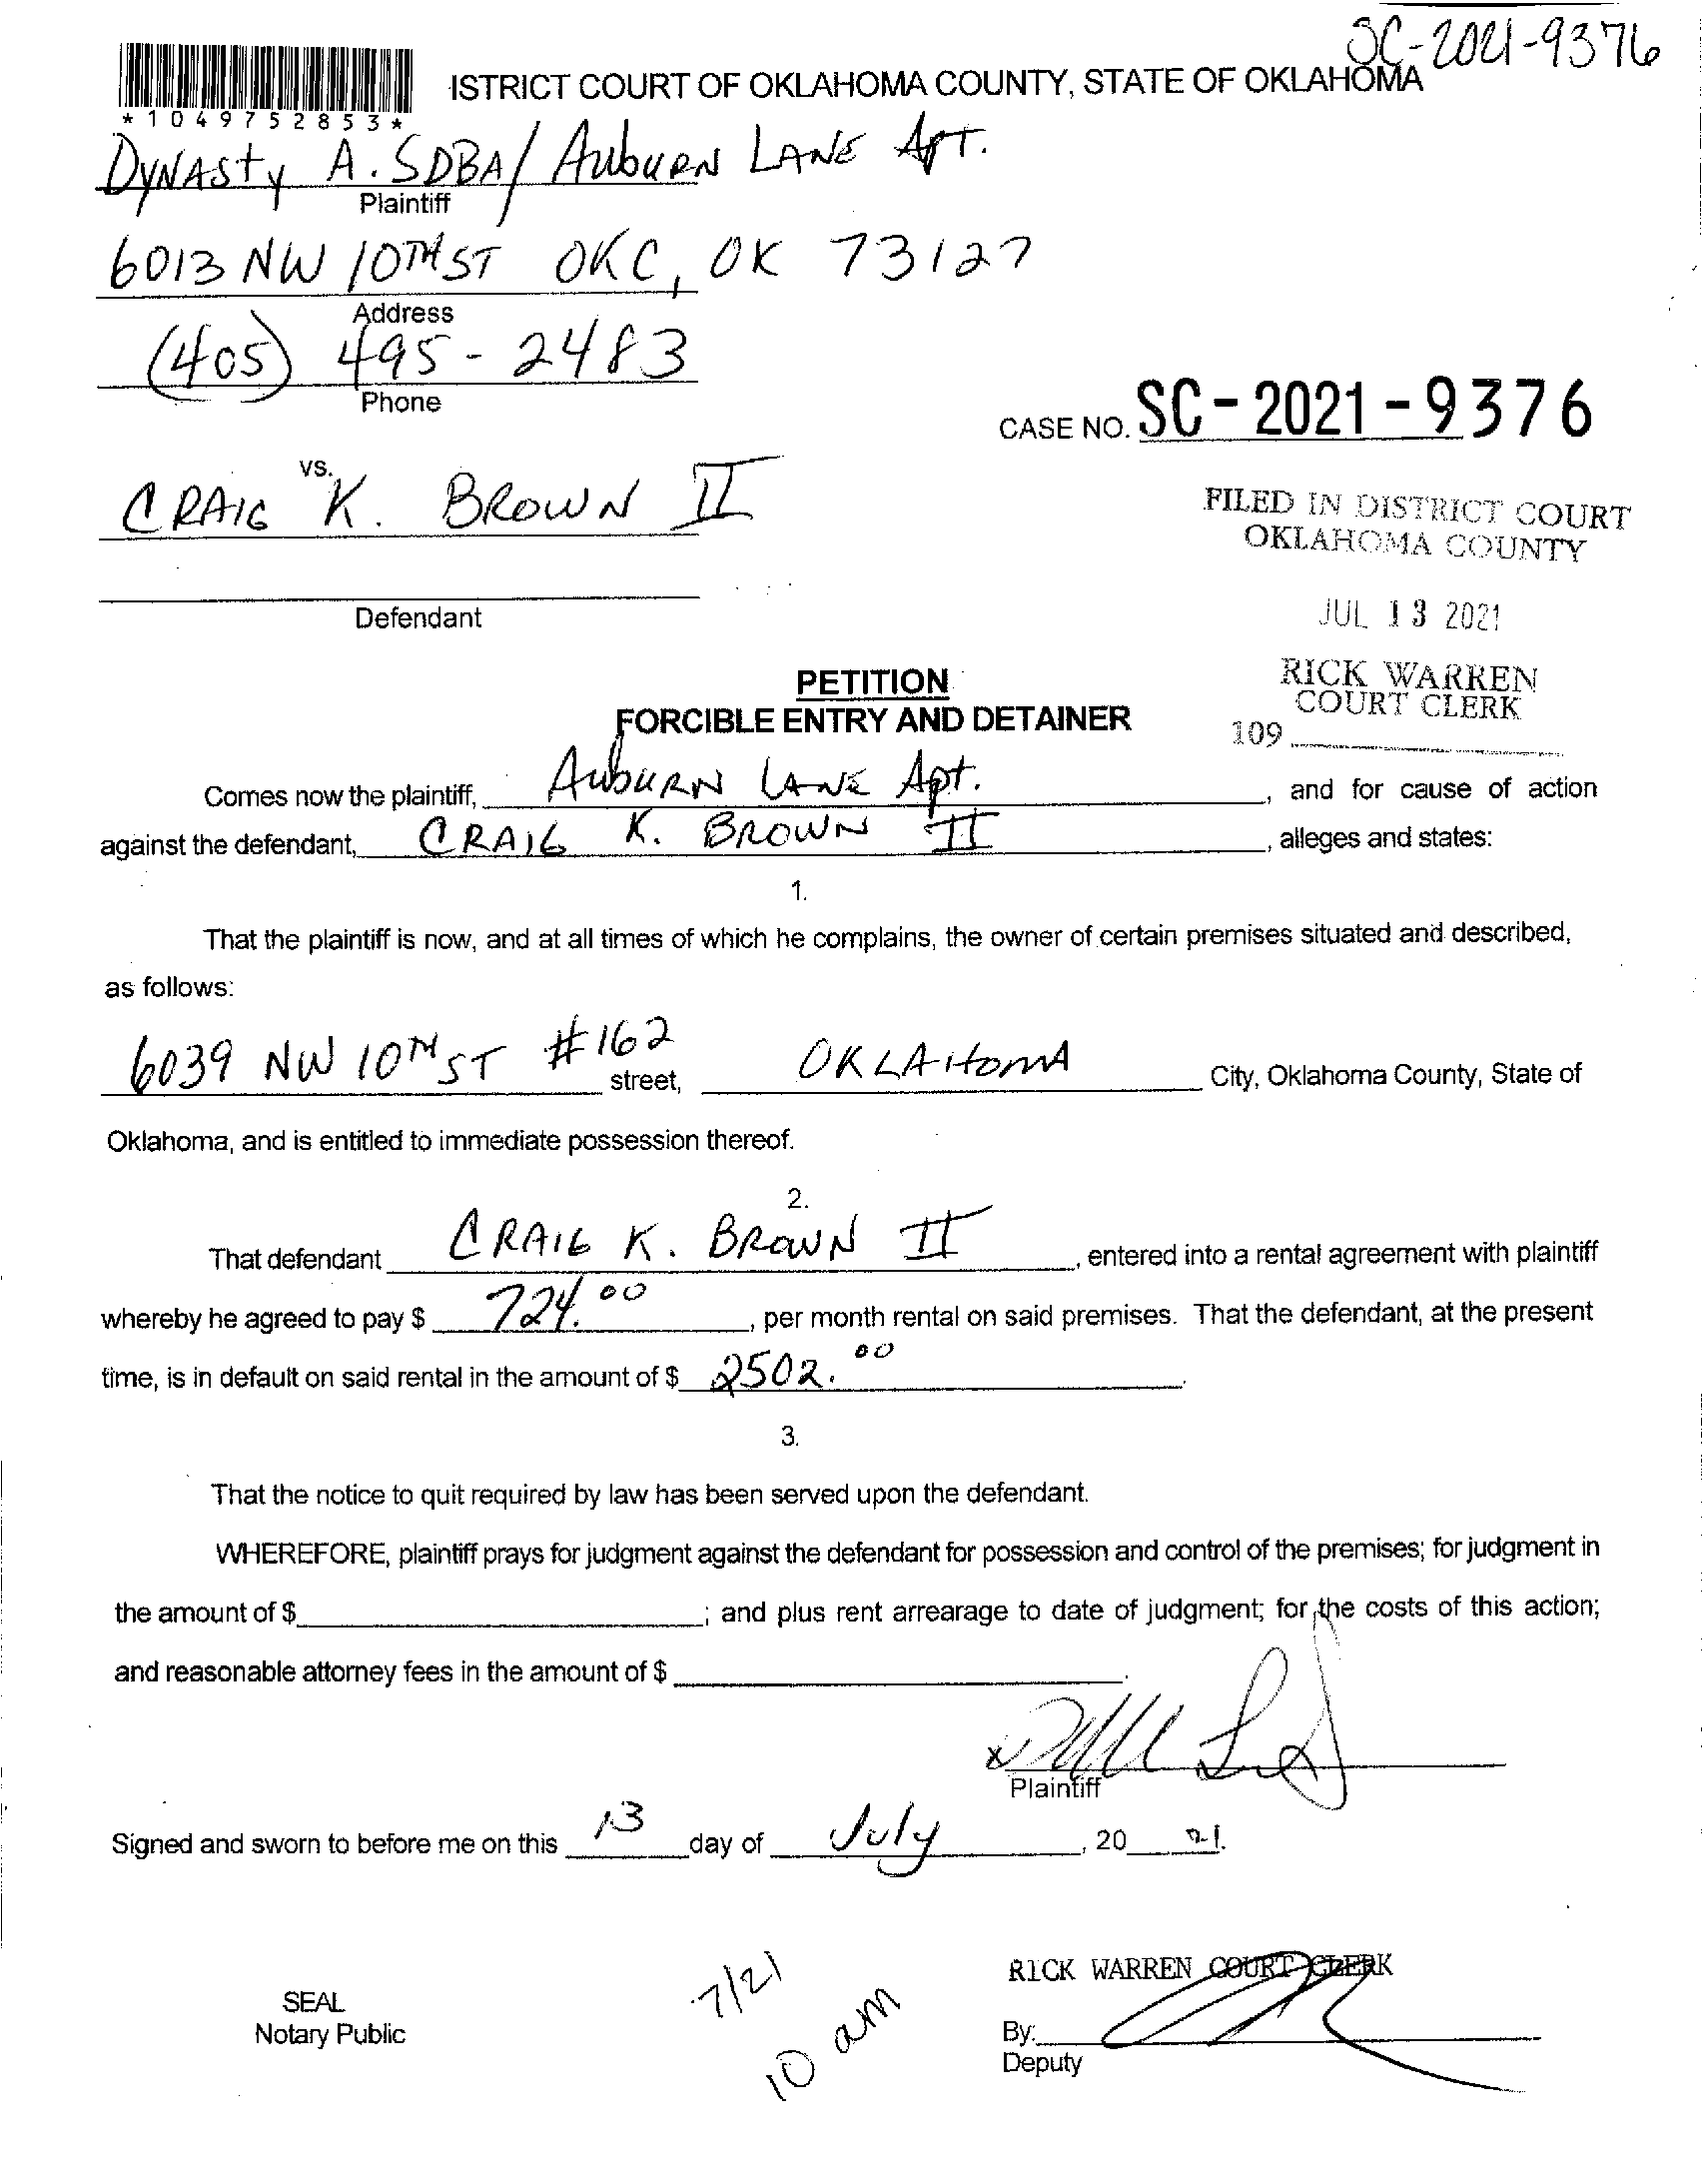 SC-2021-9376
ISTRICT COURT OF OKLAHOMA COUNTY, STATE OF OKLAHOMA
*1049752853*
DYNASTY A. SDBA/ AUBURN LANE APT.
Plaintiff
6013 NW 10TH ST OKC, OK 73127
Address
(405) 495-2483
Phone
CASE NO. SC-2021-9376
vs.
CRAIG K. BROWN II
FILED IN DISTRICT COURT
OKLAHOMA COUNTY
Defendant
JUL 13 2021
PETITION
RICK WARREN
COURT CLERK
FORCIBLE ENTRY AND DETAINER
109
Comes now the plaintiff, AUBURN LANE Apt. , and for cause of action
against the defendant, CRAIG K. BROWN II , alleges and states:
1.
That the plaintiff is now, and at all times of which he complains, the owner of certain premises situated and described,
as follows:
6039 NW 10TH ST #162 street, OKLAHOMA City, Oklahoma County, State of
Oklahoma, and is entitled to immediate possession thereof.
2.
That defendant CRAIG K. BROWN II , entered into a rental agreement with plaintiff
whereby he agreed to pay $ 724.00 , per month rental on said premises. That the defendant, at the present
time, is in default on said rental in the amount of $ 2502.00 .
3.
That the notice to quit required by law has been served upon the defendant.
WHEREFORE, plaintiff prays for judgment against the defendant for possession and control of the premises; for judgment in
the amount of $ ; and plus rent arrearage to date of judgment; for the costs of this action;
and reasonable attorney fees in the amount of $ .
x
Plaintiff
Signed and sworn to before me on this 13 day of July , 20 21.
7/21
10 am
RICK WARREN COURT CLERK
SEAL
Notary Public
By:
Deputy